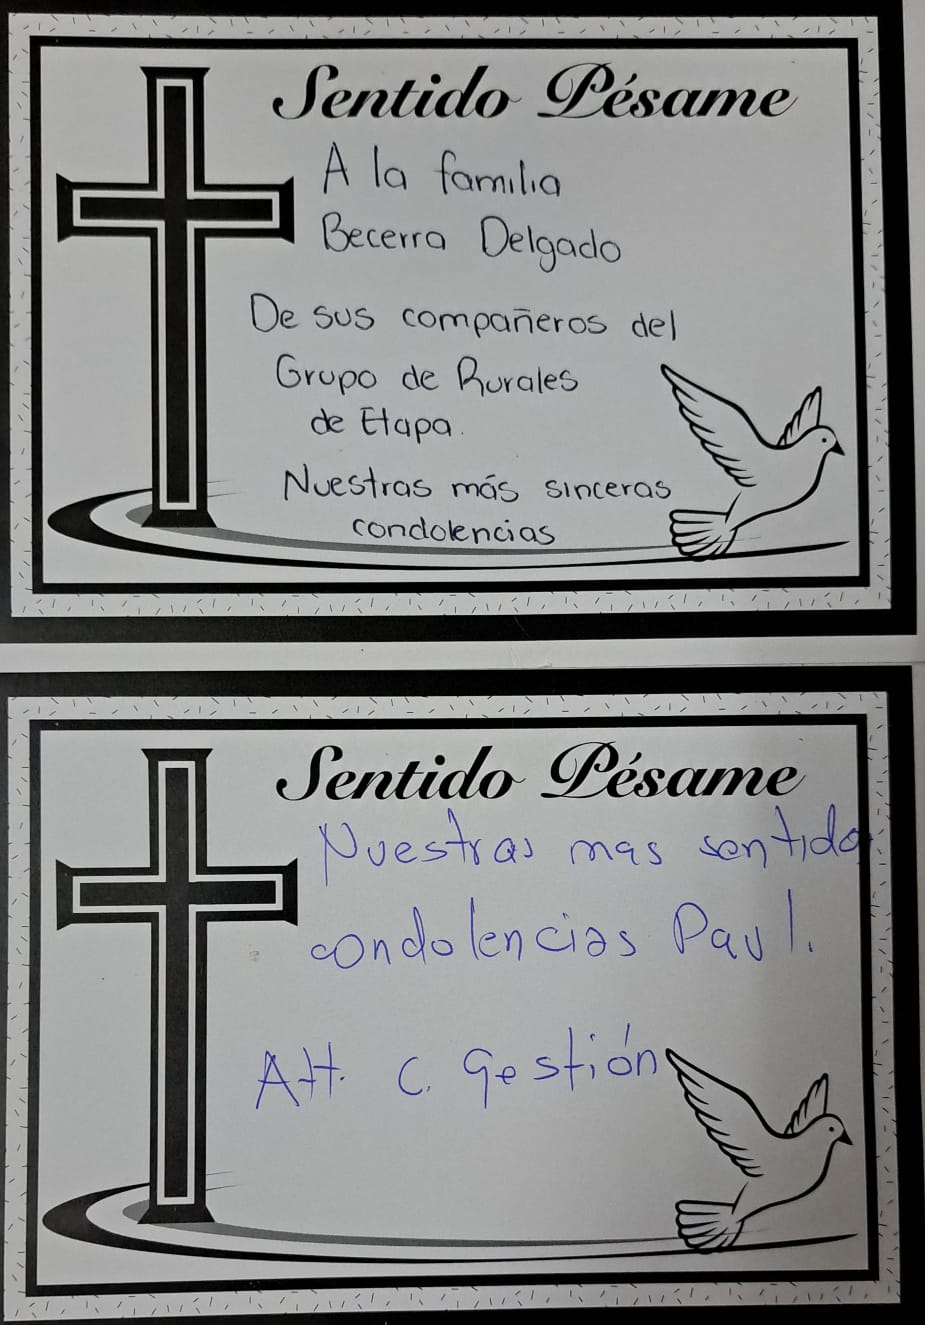 Sentido Pésame
A la familia
Becerra Delgado
De sus compañeros del
Grupo de Rurales
de Etapa.
Nuestras más sinceras
condolencias
Sentido Pésame
Nuestras mas sentida
condolencias Paul.
Att. C. Gestión